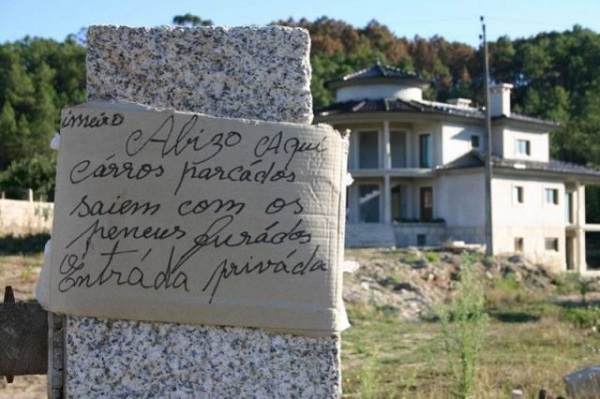 Abizo Aqui
cárros parcádos
saiem com os
peneus furádos
Entráda priváda